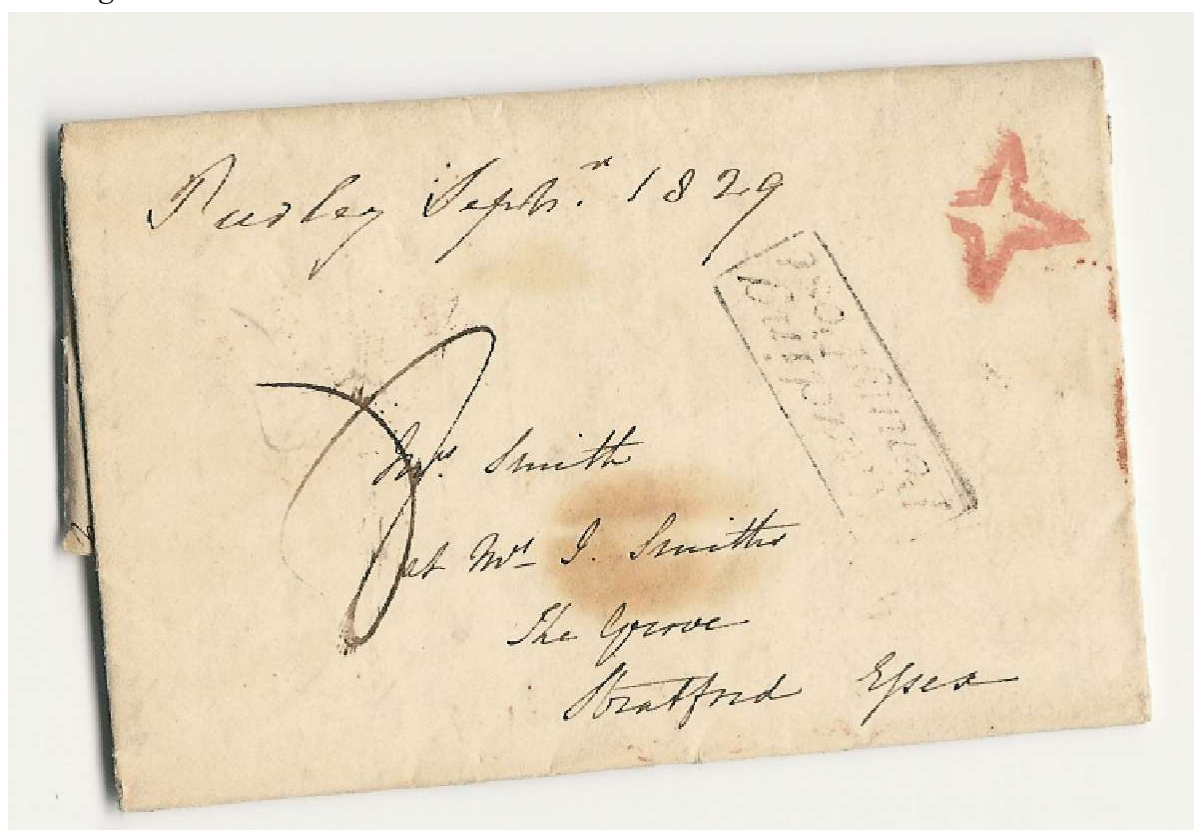 Pudley Septr. 1829
Mrs. Smith
at Mrs I. Smiths
The Grove
Stratford Essex